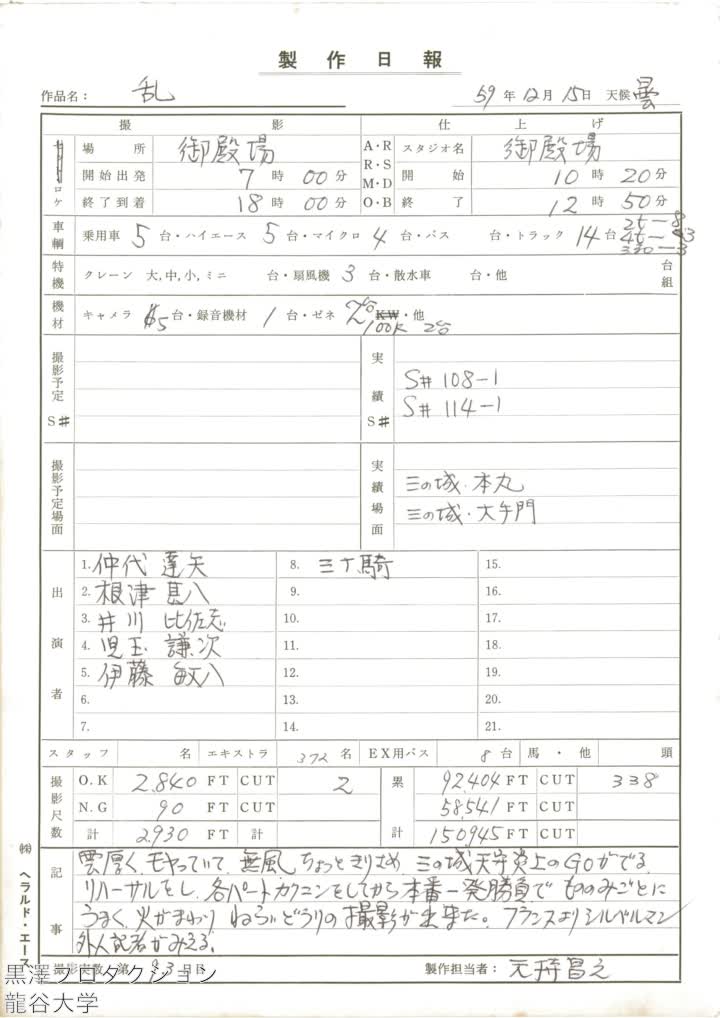 製作日報
作品名: 乱 59年12月15日 天候 曇
撮影 仕上げ
ロケ 場所 御殿場 A・R R・S M・D O・B スタジオ名 御殿場
開始出発 7時00分 開始 10時20分
終了到着 18時00分 終了 12時50分
車輌 乗用車 5台・ハイエース 5台・マイクロ 4台・バス 台・トラック 14台 2t-8
特機 クレーン 大,中,小,ミニ 台・扇風機 3台・散水車 台・他 台組
機材 キャメラ 5台・録音機材 1台・ゼネ 2台 KW・他
100K 2台
撮影予定 S# 実績 S#
S# 108-1
S# 114-1
撮影予定場面 実績場面
三の城・本丸
三の城・大手門
出演者
1. 仲代達矢 8. 三十騎 15.
2. 根津甚八 9. 16.
3. 井川比佐志 10. 17.
4. 児玉謙次 11. 18.
5. 伊藤敏八 12. 19.
6. 13. 20.
7. 14. 21.
スタッフ 名 エキストラ 372名 EX用バス 8台 馬・他 頭
撮影尺数 O.K 2,840 FT CUT 2 累計 92,404 FT CUT 338
N.G 90 FT CUT 58,541 FT CUT
計 2,930 FT 計 150,945 FT CUT
記事
雲厚く、モヤっていて、無風、ちょっときりさめ、三の城天守炎上のGOがでる、
リハーサルをし、各パートカクニンをしてから本番一発勝負でもののみごとに
うまく、火がまわり ねらいどうりの撮影が出来た。フランスよりシルベルマン
外人記者がみえる。
撮影実数 第93日目 製作担当者:
㈱ヘラルド・エース
黒澤プロダクション
龍谷大学